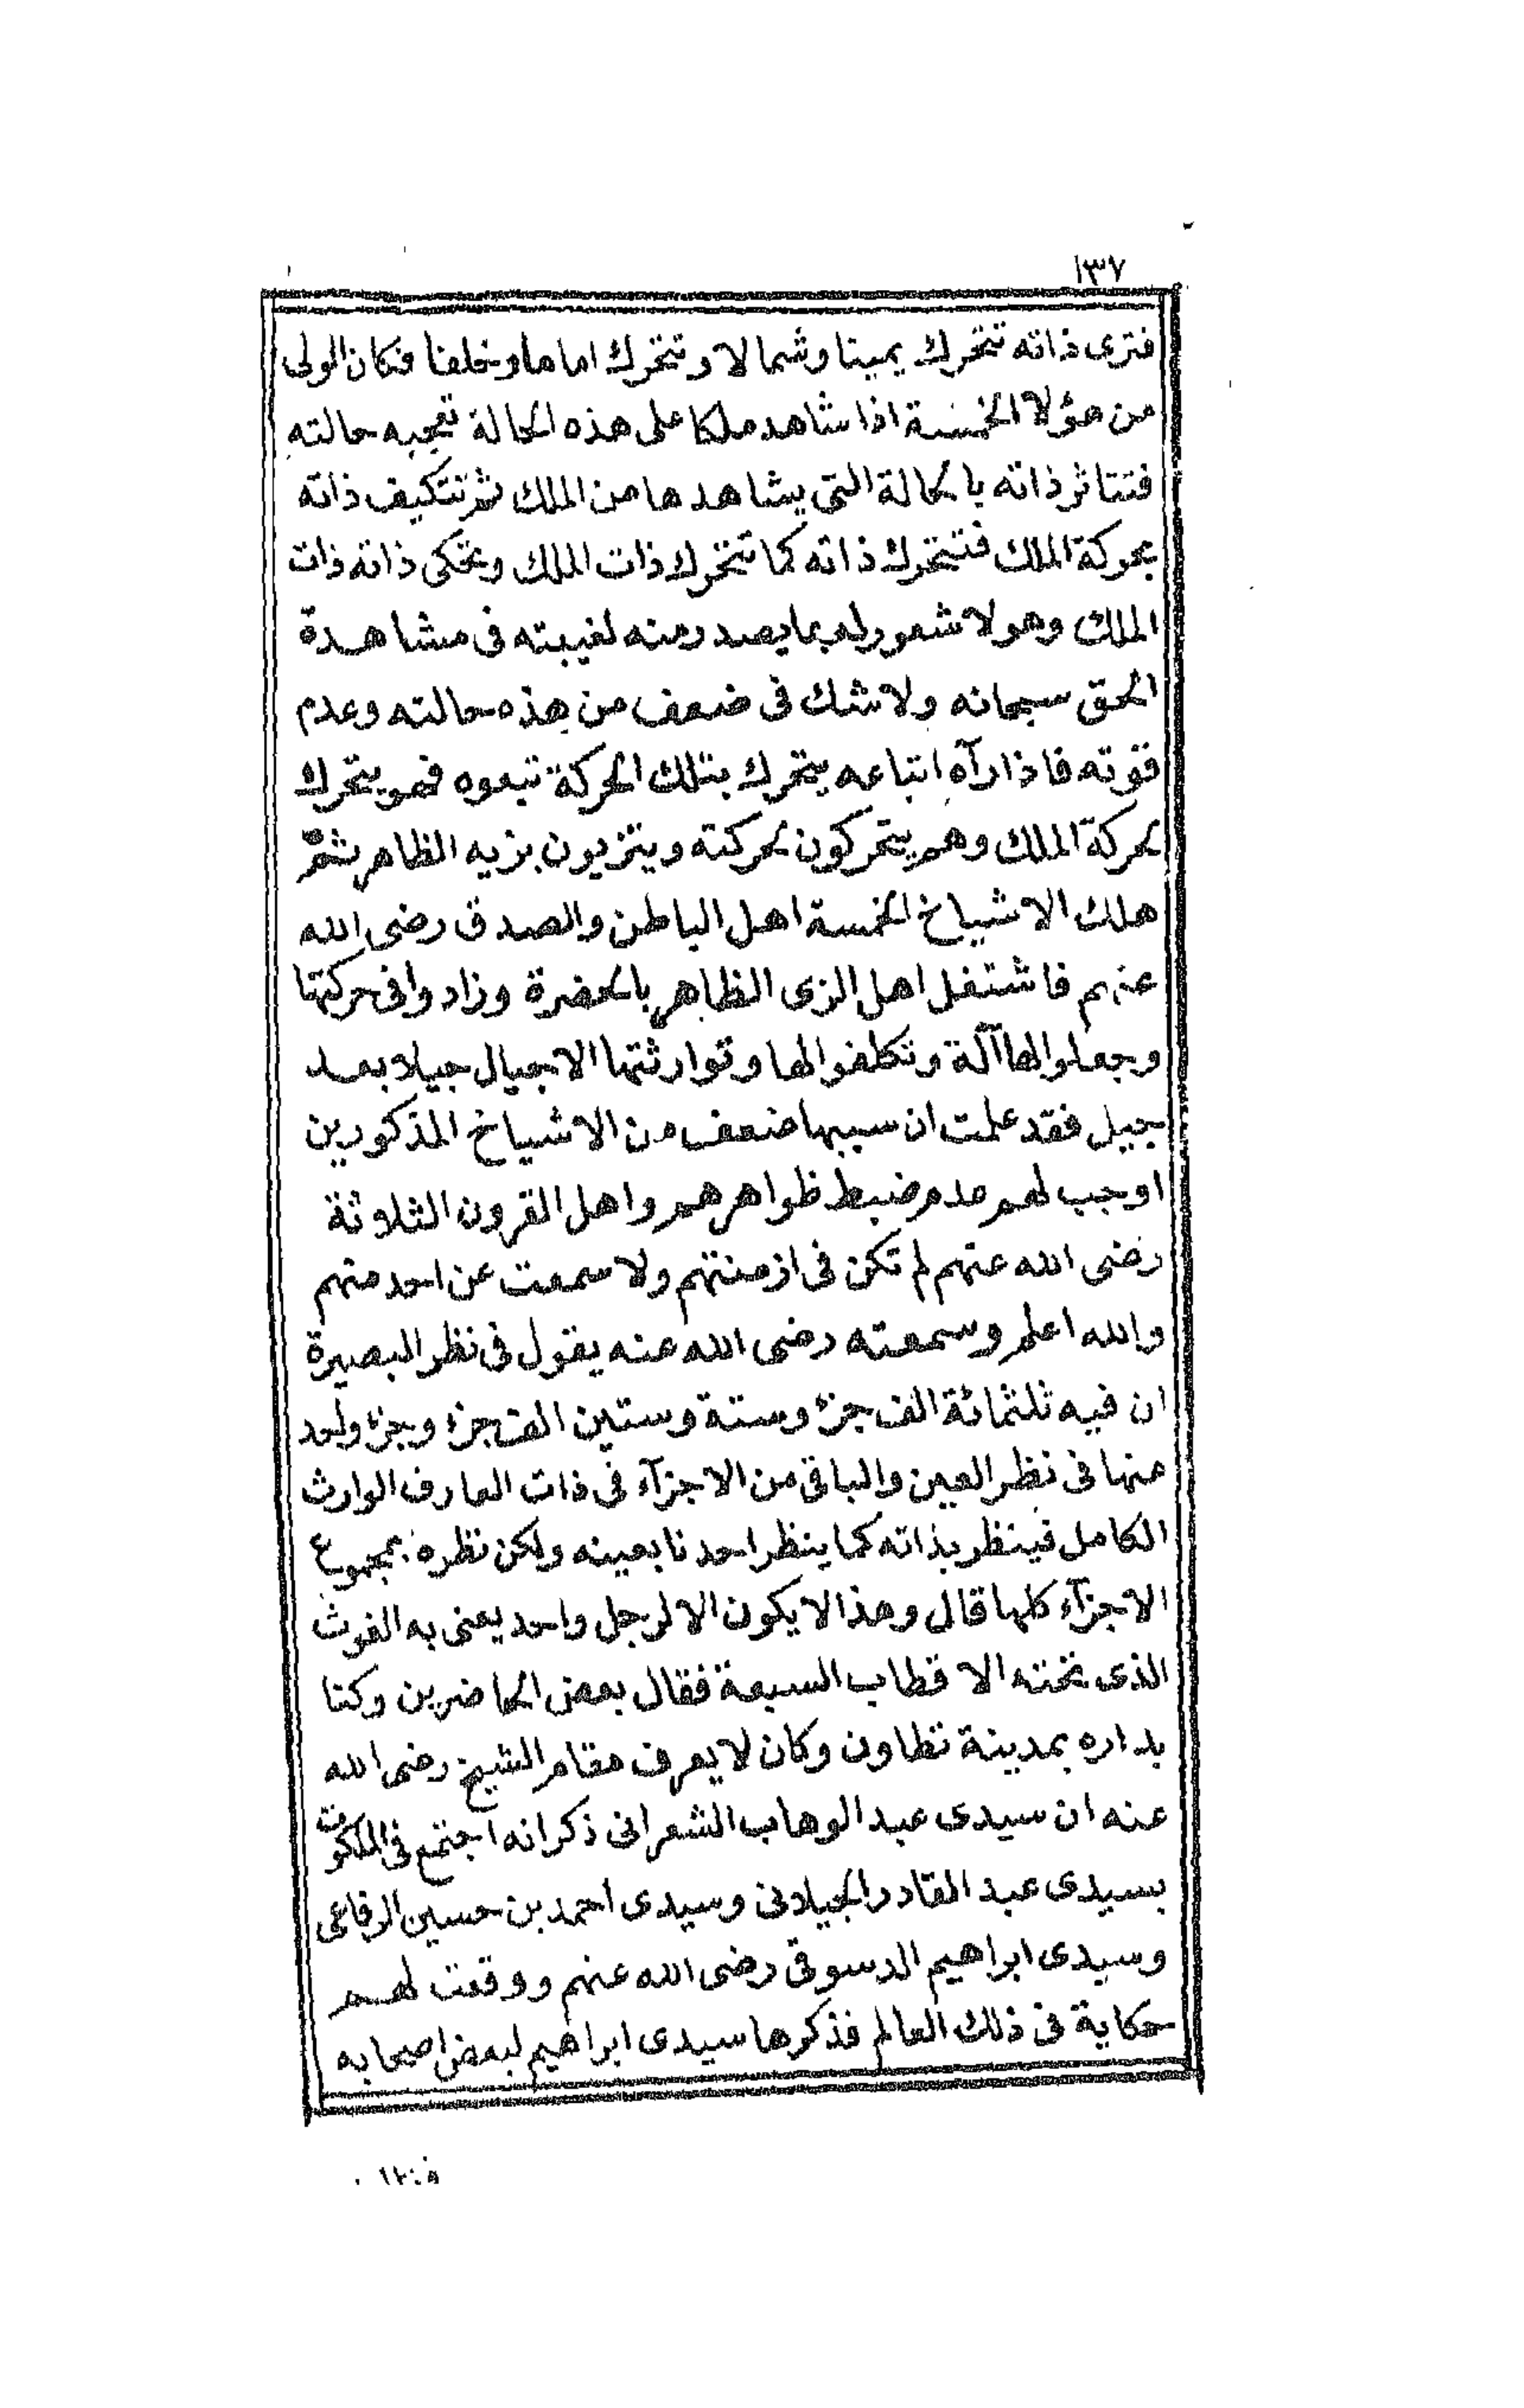 ١٣٧
فترى ذاته تتحرك يمينا وشمالا وتتحرك اماما وخلفا فكان الولى
من هؤلا الخمسة اذا شاهد ملكا على هذه الحالة تعجبه حالته
فتتاثر ذاته بالحالة التى يشاهدها من الملك ثم تتكيف ذاته
بحركة الملك فتتحرك ذاته كما تتحرك ذات الملك وتحكى ذاته ذات
الملك وهو لا شعور له بما يصدر منه لغيبته فى مشاهدة
الحق سبحانه ولا شك فى ضعف من هذه حالته وعدم
قوته فاذا رآه اتباعه يتحرك بتلك الحركة تبعوه فهو يتحرك
بحركة الملك وهم يتحركون بحركته ويتزيون بزيه الظاهر ثم
هلك الاشياخ الخمسة اهل الباطن والصدق رضى الله
عنهم فاشتغل اهل الزى الظاهر بالحضرة وزادوا فى حركتها
وجعلوا لها آلة وتكلفوا لها وتوارثتها الاجيال جيلا بعد
جيل فقد علمت ان سببها ضعف من الاشياخ المذكورين
اوجب لهم عدم ضبط ظواهرهم واهل القرون الثلاثة
رضى الله عنهم لم تكن فى ازمنتهم ولا سمعت عن احد منهم
والله اعلم وسمعته رضى الله عنه يقول فى نظر البصيرة
ان فيه ثلثمائة الف جزؤ وستة وستين الف جزء وجزؤ واحد
منها فى نظر العين والباقى من الاجزآء فى ذات العارف الوارث
الكامل فينظر بذاته كما ينظر احدنا بعينه ولكن نظره بمجموع
الاجزآء كلها قال وهذا لا يكون الا لرجل واحد يعنى به الغوث
الذى تحته الاقطاب السبعة فقال بعض الحاضرين وكنا
بداره بمدينة تطاون وكان لا يعرف مقام الشيخ رضى الله
عنه ان سيدى عبد الوهاب الشعرانى ذكر انه اجتمع فى الملكوت
بسيدى عبد القادر الجيلانى وسيدى احمد بن حسين الرفاعى
وسيدى ابراهيم الدسوقى رضى الله عنهم ووقعت لهم
حكاية فى ذلك العالم فذكرها سيدى ابراهيم لبعض اصحابه